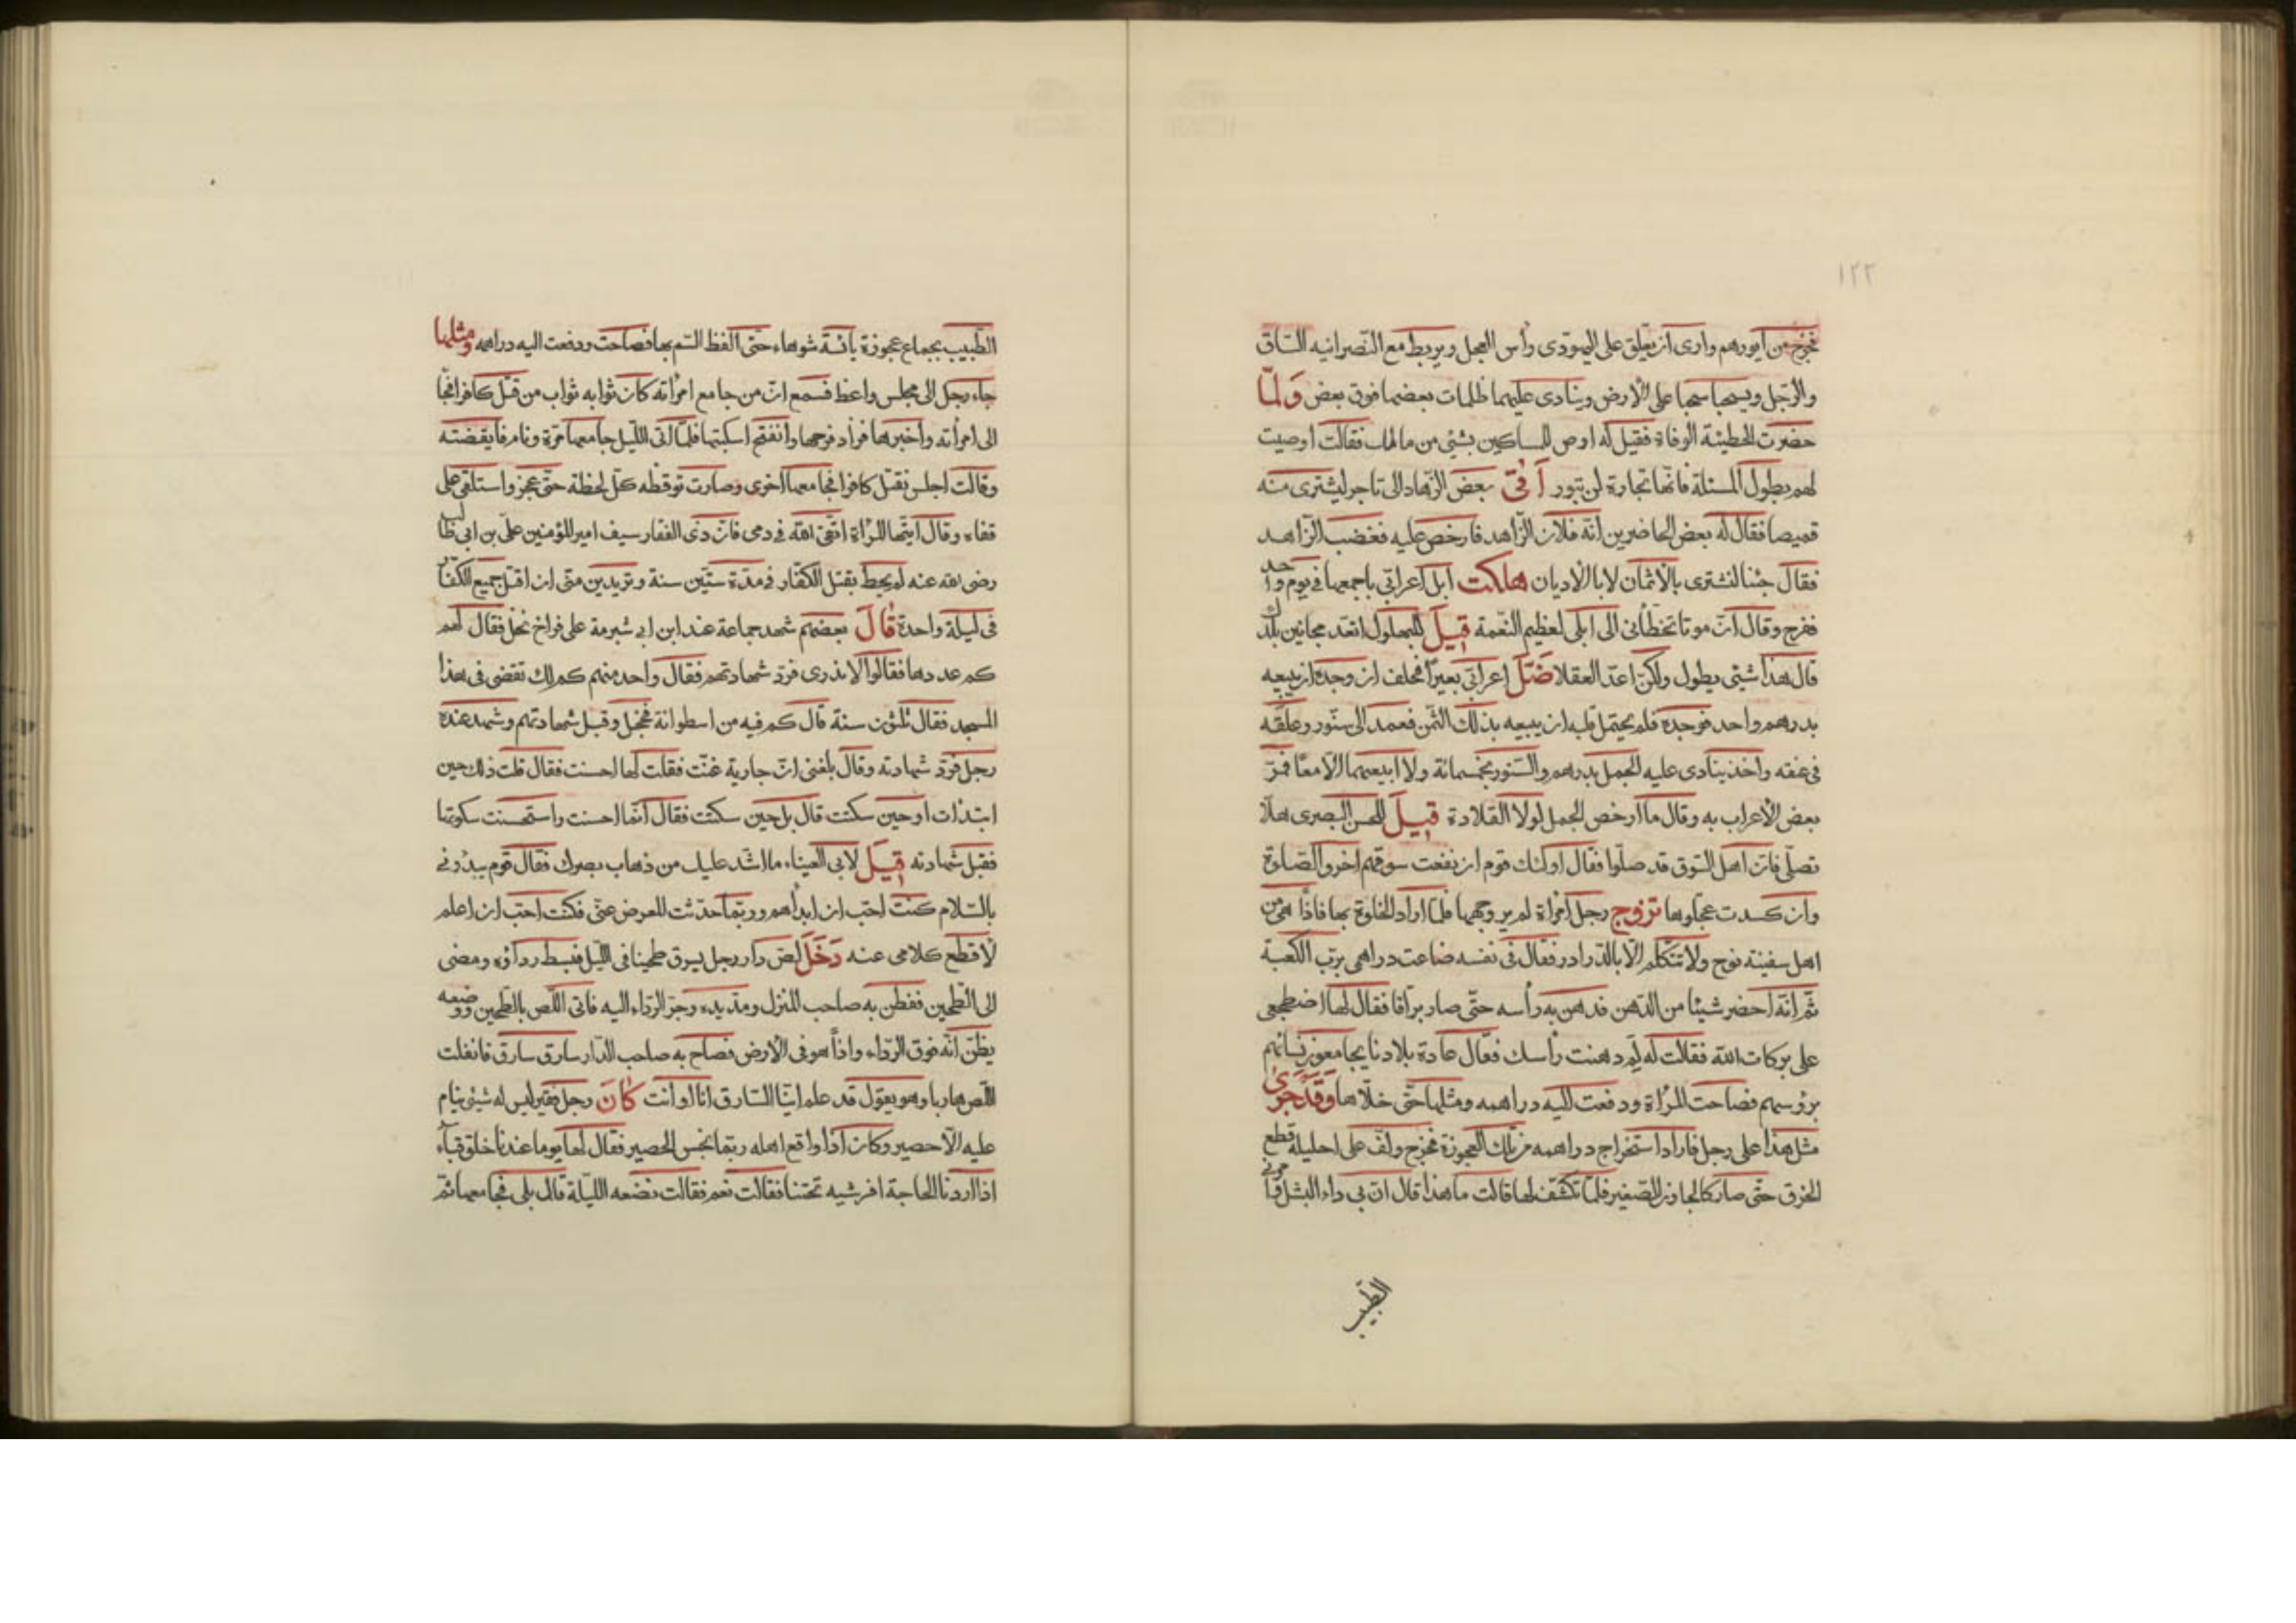 ١٢٢
فخرج من ايورهم وارى ان يعلق على اليهودى رأس العجل ويربط مع النصرانيه الساق
والرجل ويسحبا سحبا على الأرض وينادى عليهما ظلمات بعضها فوق بعض ولمّا
حضرت الحطيئة الوفاة فقيل له اوص للمساكين بشئ من مالك فقالت اوصيت
لهم بطول المسئلة فانّها تجارة لن تبور أتى بعض الزهاد الى تاجر ليشترى منه
قميصا فقال له بعض الحاضرين انّه فلان الزاهد فارخص عليه فغضب الزاهد
فقال جئنا لنشترى بالأثمان لا بالأديان هلكت ابل اعرابّى باجمعها فى يوم واحد
ففرح وقال انّ موتا تخطّأنى الى ابلى لعظيم النّعمة قيل للبهلول اتعد مجانين بلدك
قال هذا شيئ يطول ولكن اعدّ العقلا ضلّ اعرابّى بعيرا فحلف ان وجده ان يبيعه
بدرهم واحد فوجده فلم يحتمل قلبه ان يبيعه بذلك الثّمن فعمد الى سنّور وعلّقه
فى عنقه واخذ ينادى عليه الجمل بدرهم والسّنور بخمسمائة ولا ابيعهما الّا معًا فمرّ
بعض الأعراب به وقال ما ارخص الجمل لولا القلادة قيل للحسن البصرى هلّا
تصلّى فانّ اهل السّوق قد صلّوا فقال اولئك قوم ان نفعت سوقهم اخروا الصّلوة
وان كسدت عجّلوها تزوج رجل امرأة لم ير وجهها فلمّا اراد الخلوة بها فاذًا هى من
اهل سفينة نوح ولا تتكلم الّا بالدّرادر فقال فى نفسه ضاعت دراهمى بربّ الكعبة
ثمّ انّه احضر شيئا من الدّهن فدهن به رأسه حتّى صار برّاقا فقال لها اضطجعى
على بركات الله فقالت له لم دهنت رأسك فقال عادة بلادنا يجامعون نسائهم
برؤسهم فصاحت المرأة ودفعت اليه دراهمه ومثلها حتّى خلّاها وقد جرى
مثل هذا على رجل فاراد استخراج دراهمه من تلك العجوزة فخرج ولفّ على احليله قطع
الخرق حتّى صار كالجاون الصّغير فلمّا تكشّف لها قالت ما هذا قال انّ بى داء البثل
الطّبيب
الطّبيب بجماع عجوزة يائسة شوهاء حتّى الفظ السّم بها فصاحت ودفعت اليه دراهمه ومثلها
جاء رجل الى مجلس واعظ فسمع انّ من جامع امرأته كان ثوابه ثواب من قتل كافرا فجا
الى امرأته واخبرها فراد فرحها وانفتح اسكبتها فلمّا اتى اللّيل جامعها مرّة ونام فايقضته
وقالت اجلس نقتل كافرا فجامعها اخرى وصارت توقظه كلّ لحظة حتّى عجز واستلقى على
قفاه وقال ايتّها المرأة اتّقى الله فى دمى فانّ ذى الفقار سيف امير المؤمنين علىّ بن ابى طالب
رضى الله عنه لم يحط بقتل الكفّار فى مدّة ستّين سنة وتريدين منّى ان اقتل جميع الكفّار
فى ليلة واحدة قال بعضهم شهد جماعة عند ابن ابى شبرمة على فراخ نخل فقال لهم
كم عددها فقالوا لا ندرى فردّ شهادتهم فقال واحد منهم كم لك تقضى فى هذا
المسجد فقال ثلثون سنة قال كم فيه من اسطوانة فخجل وقبل شهادتهم وشهد عنده
رجل فردّ شهادته وقال بلغنى انّ جارية غنّت فقلت لها احسنت فقال قلت ذلك حين
ابتدأت او حين سكتت قال بل حين سكتت فقال انّما احسنت واستحسنت سكوتها
فقبل شهادته قيل لابى العيناء ما اشد عليك من ذهاب بصرك فقال قوم يبدؤنى
بالسّلام كنت احبّ ان ابدأهم وربّما حدّثت للعرض عنّى فكنت احبّ ان اعلم
لأقطع كلامى عنه دخل لصّ دار رجل يسرق طحينا فى اللّيل فبسط رداؤه ومضى
الى الطّحين ففطن به صاحب المنزل ومدّ يده وجرّ الرّداء اليه فاتى اللّص بالطّحين ووضعه
يظنّ انّه فوق الرّداء واذاً هو فى الأرض فصاح به صاحب الدّار سارق سارق فانفلت
اللّص هاربا وهو يقول قد علم ايّنا السّارق انا او انت كان رجل فقير ليس له شيئ ينام
عليه الّا حصير وكان اذا واقع اهله ربّما نجّس الحصير فقال لها يوما عندنا خلق قباء
اذا اردنا الحاجة افرشيه تحتنا فقالت نعم فقالت نضعه اللّيلة قال بلى فجامعها ثمّ